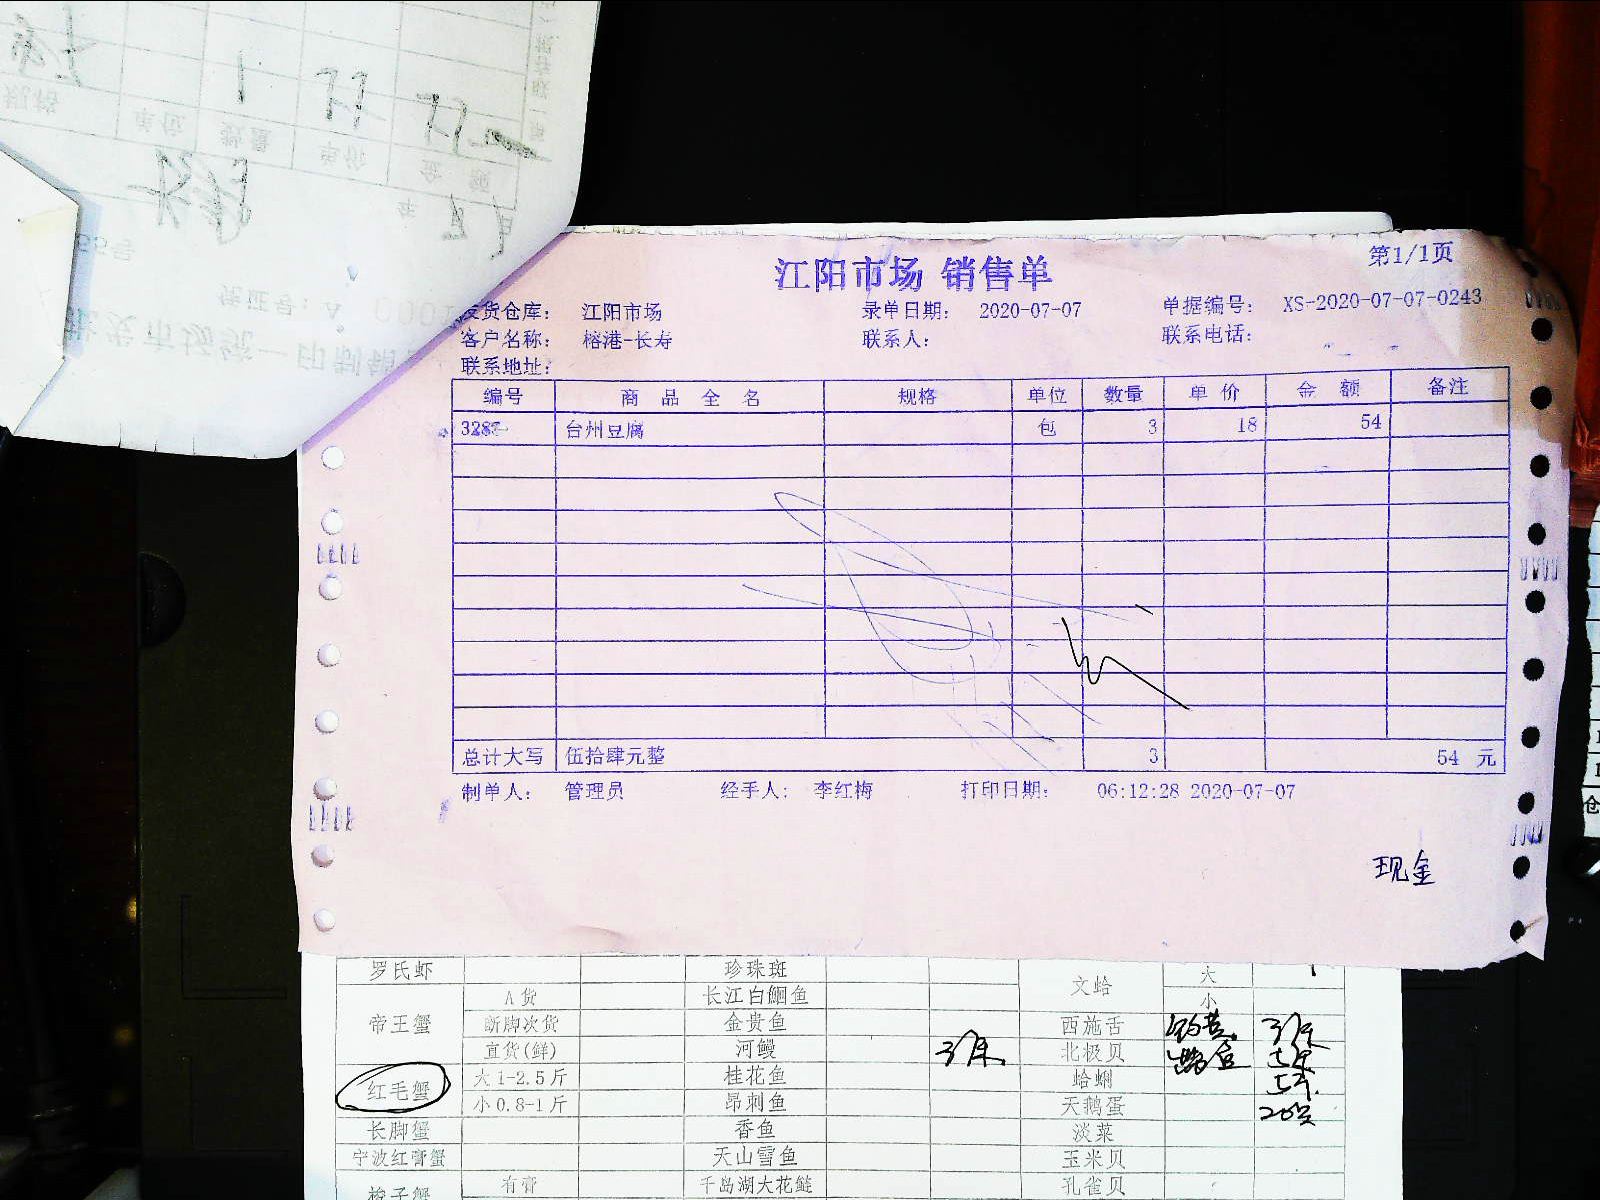 江阳市场 销售单
第1/1页
发货仓库: 江阳市场 录单日期: 2020-07-07 单据编号: XS-2020-07-07-0243
客户名称: 榕港-长寿 联系人: 联系电话:
联系地址:
编号 商品全名 规格 单位 数量 单价 金额 备注
台州豆腐 包 3 18 54
总计大写 伍拾肆元整 3 54 元
制单人: 管理员 经手人: 李红梅 打印日期: 06:12:28 2020-07-07
现金
罗氏虾 珍珠斑 文蛤 大
A货 长江白鮰鱼 小
帝王蟹 断脚次货 金贵鱼 西施舌
直货(鲜) 河鳗 北极贝
红毛蟹 大1-2.5斤 桂花鱼 蛤蜊
小0.8-1斤 昂刺鱼 天鹅蛋
长脚蟹 香鱼 淡菜
宁波红膏蟹 天山雪鱼 玉米贝
梭子蟹 有膏 千岛湖大花鲢 孔雀贝
单位 数量 单价 金额
年 月 日
凭证号: A
批发市场统一印制销